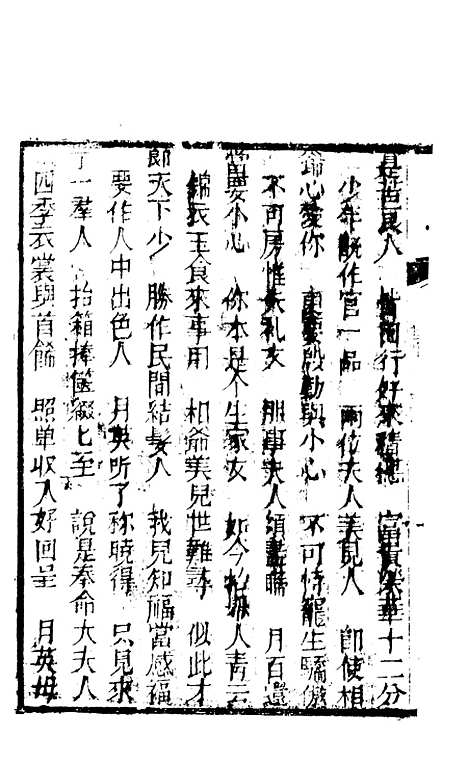 是苦良人 行好來積 富貴榮華十二分
少年既作官一品 兩位夫人美兒人 即使相
爺心愛你 更要殷勤與小心 不可恃寵生驕傲
不可房帷失礼文 服事夫人須 月百還
當要小心 你本是个生家女 如今 人青云
錦衣玉食來事用 相爺美兒世難尋 似此才
郎天下少 勝作民間結髮人 我兒知福當感福
要作人中出色人 月英听了称曉得 只見來
了一羣人 抬箱捧篋綴七至 說是奉命大夫人
四季衣裳與首餙 照单收入好回呈 月英母